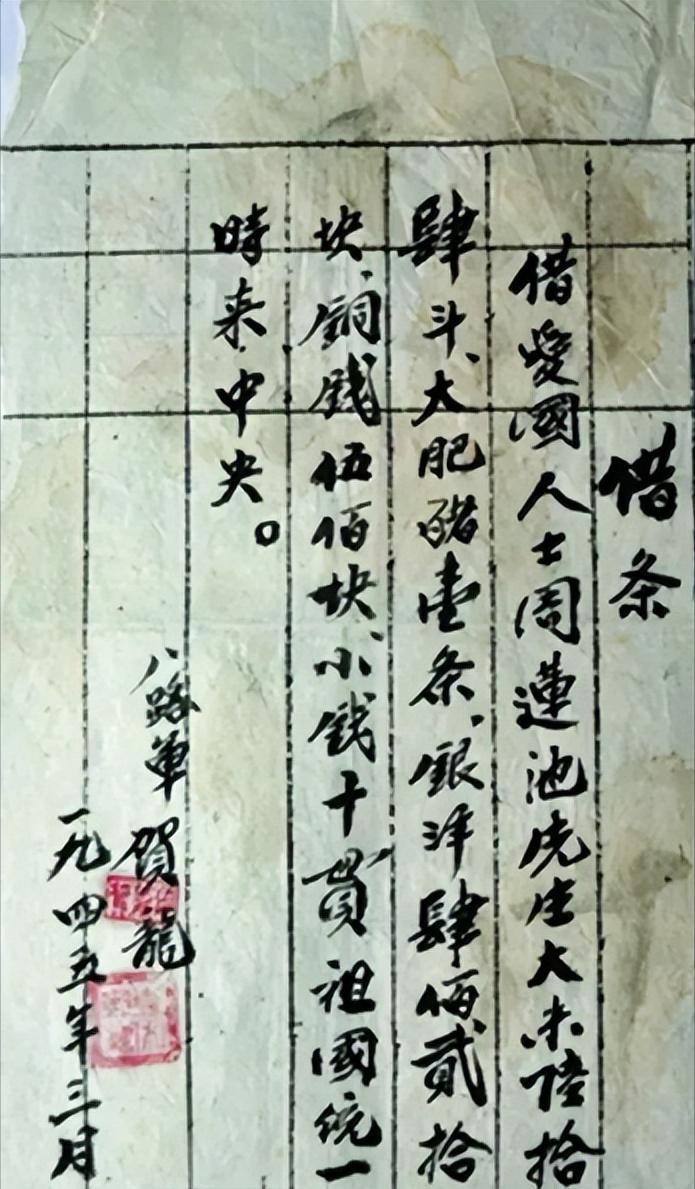 借条
借愛國人士周蓮池先生大米陸拾
肆斗、大肥豬壹条、銀洋肆佰貳拾
块、銅钱伍佰块、小钱十貫祖國統一
時来中央。
八路军 賀龍
一九四五年三月